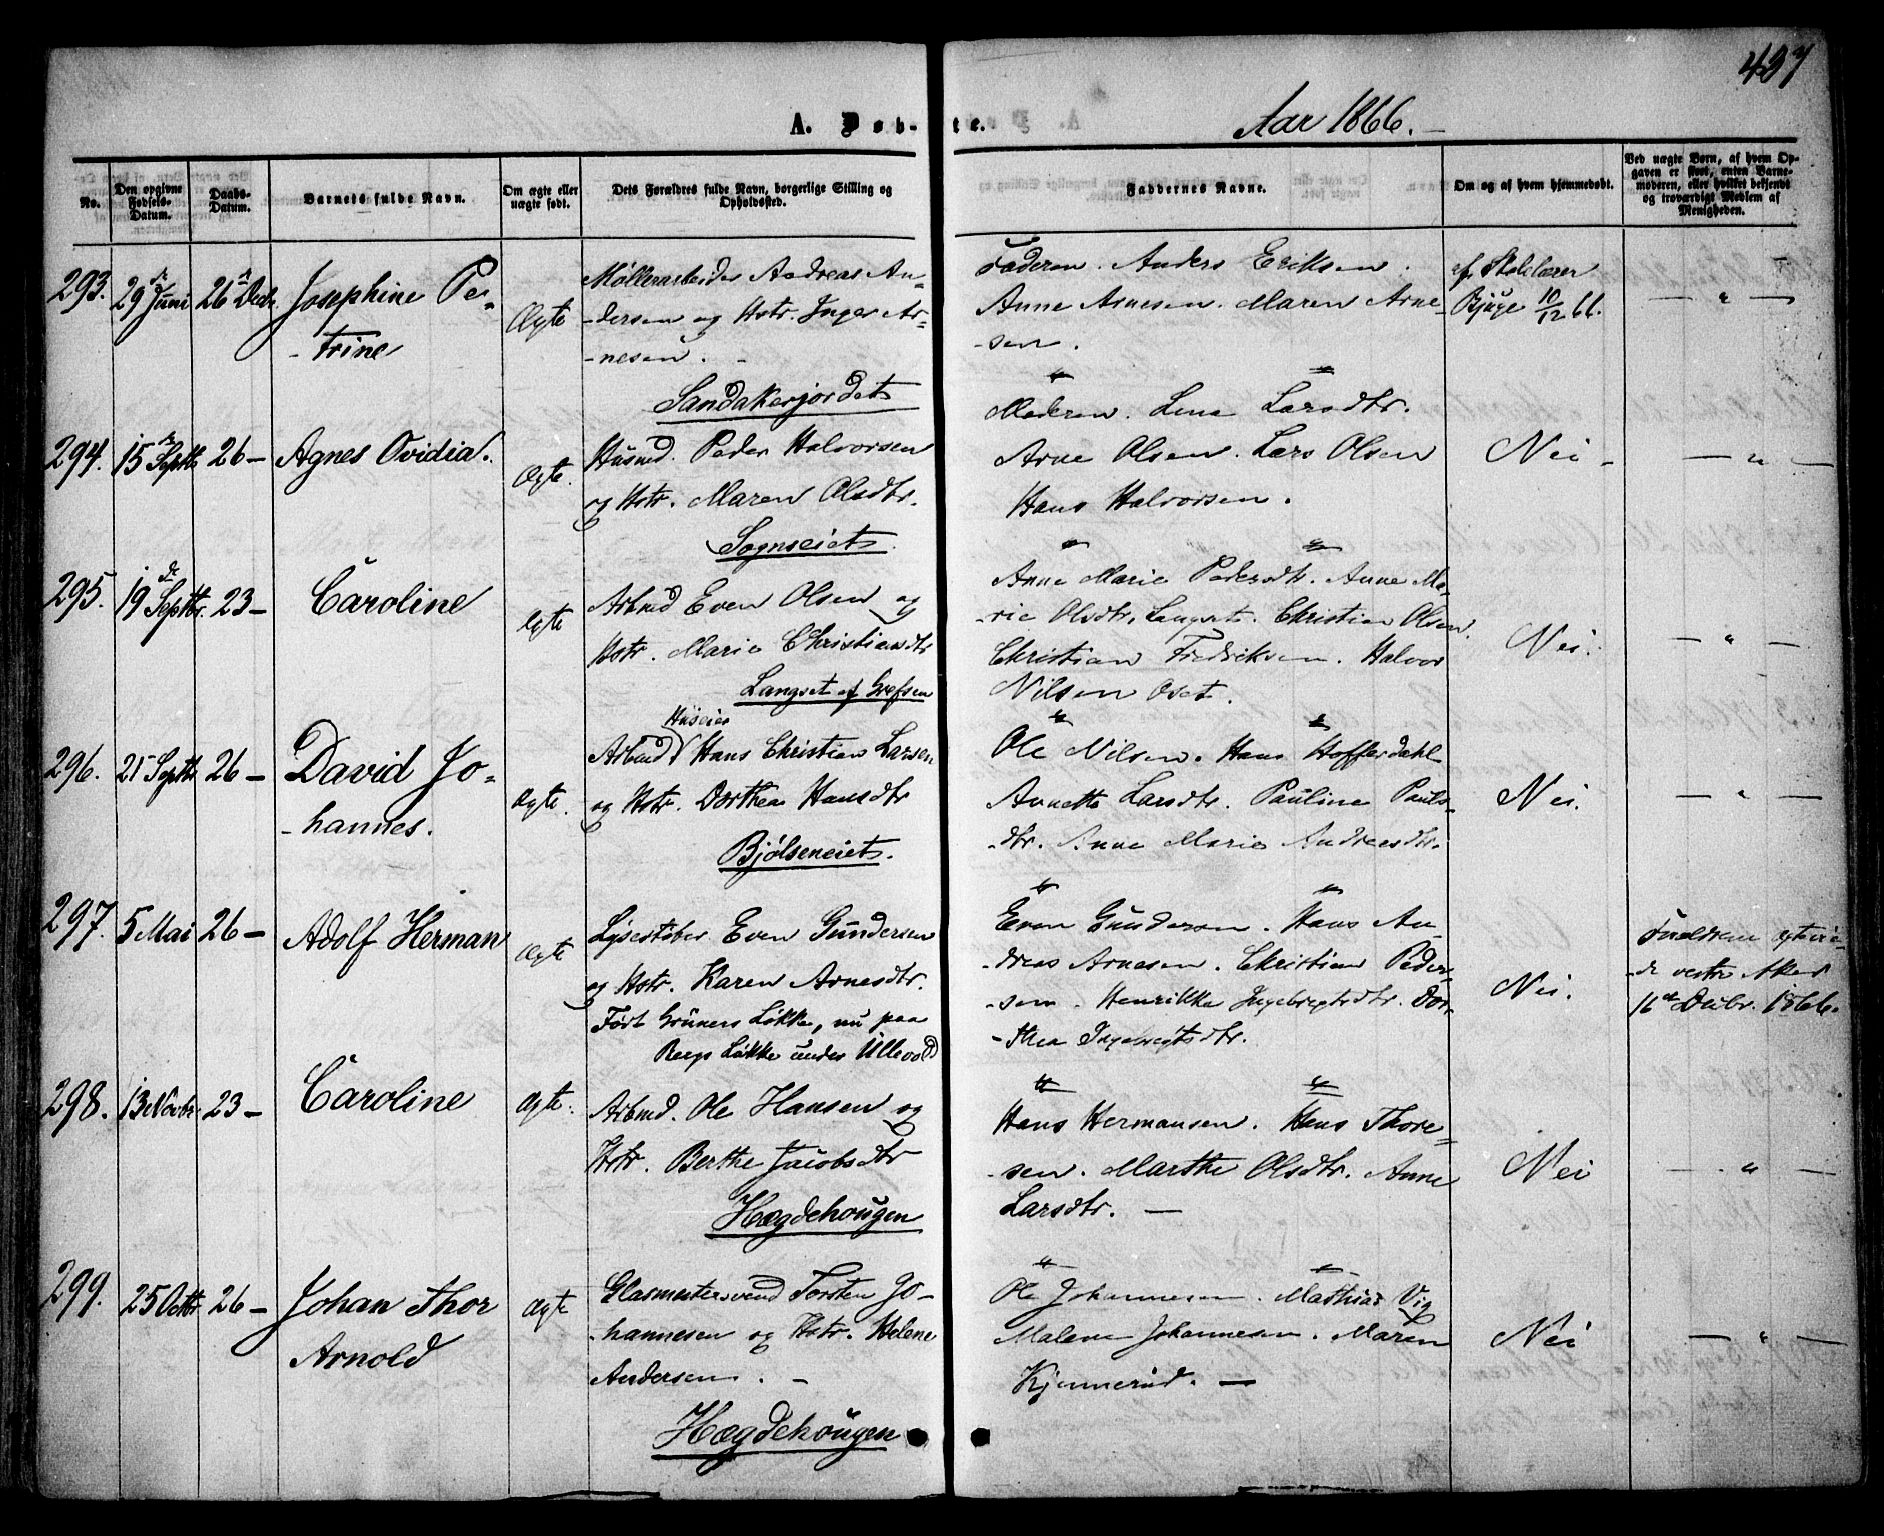 437
A. Døb-te.
Aar 1866.
No.
Den opgivne Fødsels-Datum.
Daabs-Datum.
Barnets fulde Navn.
Om ægte eller uægte født.
Dets Forældres fulde Navn, borgerlige Stilling og Opholdssted.
Faddernes Navne.
Om og af hvem hjemmedøbt.
Ved uægte Børn, af hvem Opgaven er skeet, enten Barnemoderen, eller hvilket bekjendt og troværdigt Medlem af Menigheden.
293. 29de Juni 26de Decbr. Josephine Pe-
-trine
Ægte
Møllerarbeider Andreas An-
-dersen og Hstr. Inger Ar-
-nesen. -
Sandakerjordet
Faderen. Anders Eriksen.
Anne Arnesen. Maren Arne-
-sen.
af Skolelærer
Bjüge 10/12 66.
— " —
294. 15de Septbr 26 — Agnes Ovidia.
Ægte.
Husmd. Peder Halvorsen
og Hstr. Maren Olsdtr.
Sognseiet.
Moderen. Lene Larsdtr.
Arne Olsen. Lars Olsen
Hans Halvorsen.
Nei -
— " —
295. 19de Septbr. 23 — Caroline
Ægte
Arbmd Even Olsen og
Hstr. Marie Christiansdtr
Langset af Grefsen
Anne Marie Pedersdtr. Anne Ma-
-rie Olsdtr. Langset. Christian Olsen.
Christian Fredriksen. Halvor
Nilsen Oset.
Nei.
— " —
296. 21 Septbr 26 — David Jo-
-hannes.
Ægte.
Huseier
Arbmd Hans Christian Larsen
og Hstr. Dorthea Hansdtr
Bjølseneiet.
Ole Nilsen. Hans Hofferdahl
Annette Larsdtr. Pauline Pauls-
-dtr. Anne Marie Andreasdtr.
Nei.
— " —
297. 5 Mai 26 — Adolf Herman
Ægte
Lysestøber Even Gundersen
og Hstr. Karen Arnesdtr.
Født Grüners Løkke, nu paa
Bergs Løkke under Ullevold
Even Gundersen. Hans An-
-dreas Arnesen. Christian Peder-
-sen. Henrikke Ingebregtsdtr. Dor-
-thea Ingebregtsdtr.
Nei.
vestre Aker
16de Decbr. 1866.
298. 13 Novbr. 23 — Caroline
Ægte.
Arbmd. Ole Hansen og
Hstr. Berthe Jacobsdtr
Hægdehougen
Hans Hermansen. Hans Thore-
-sen. Marthe Olsdtr. Anne
Larsdtr. —
Nei
— " —
299. 25 Octbr 26 — Johan Thor
Arnold
Ægte
Glasmestersvend Torsten Jo-
-hannesen og Hstr. Helene
Andersen. -
Hægdehougen
Ole Johannesen. Mathias Vig
Malene Johannesen. Maren
Kjennerud. —
Nei
— " —